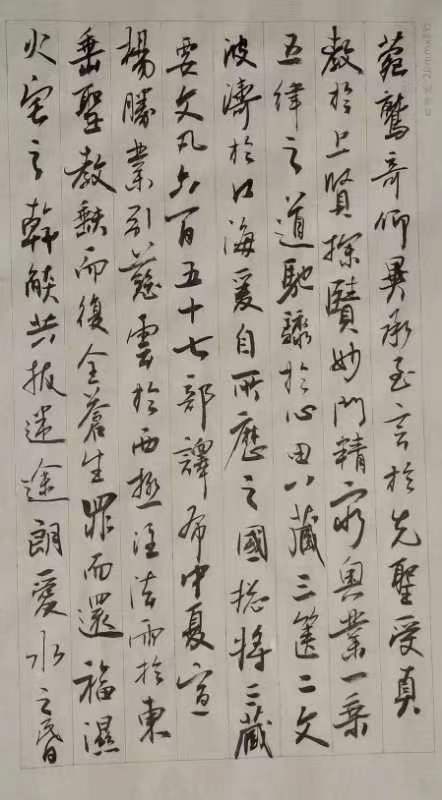 菀鷲奇仰異承至言於先聖受真
教於上賢探賾妙門精窮奥業一乘
五律之道馳驟於心田八藏三篋之文
波濤於口海爰自所歷之國揔將三藏
要文凡六百五十七部譯布中夏宣
揚勝業引慈雲於西極注法雨於東
垂聖教缺而復全蒼生罪而還福濕
火宅之乾燄共拔迷途朗愛水之昏